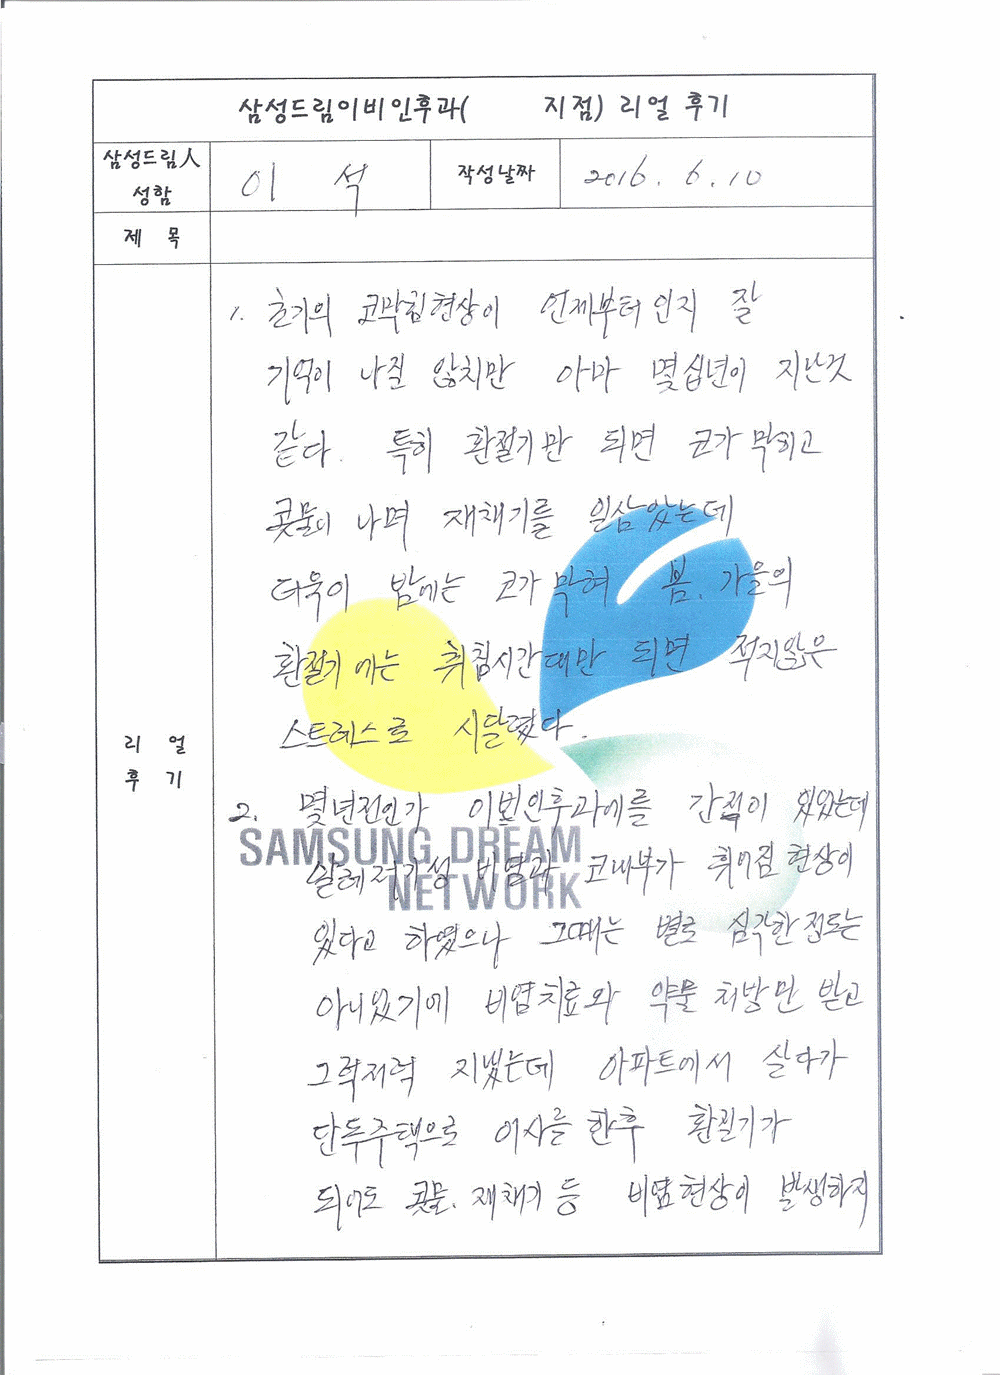 삼성드림이비인후과( 지점) 리얼 후기
삼성드림人
성함
이 석
작성날짜
2016. 6. 10
제 목
리 얼
후 기
1. 초기의 코막힘현상이 언제부터 인지 잘
기억이 나질 않치만 아마 몇십년이 지난것
같다. 특히 환절기만 되면 코가 막히고
콧물이 나며 재채기를 일삼았는데
더욱이 밤에는 코가 막혀 봄, 가을의
환절기에는 취침시간대만 되면 적지않은
스트레스로 시달렸다.
2. 몇년전인가 이빈인후과에를 간적이 있었는데
SAMSUNG DREAM
NETWORK
알레러기성 비염과 코내부가 휘어짐 현상이
있다고 하였으나 그때는 별로 심각한 정도는
아니였기에 비염치료와 약물 처방만 받고
그럭저럭 지냈는데 아파트에서 살다가
단독주택으로 이사를 한후 환절기가
되어도 콧물, 재채기 등 비염현상이 발생하지